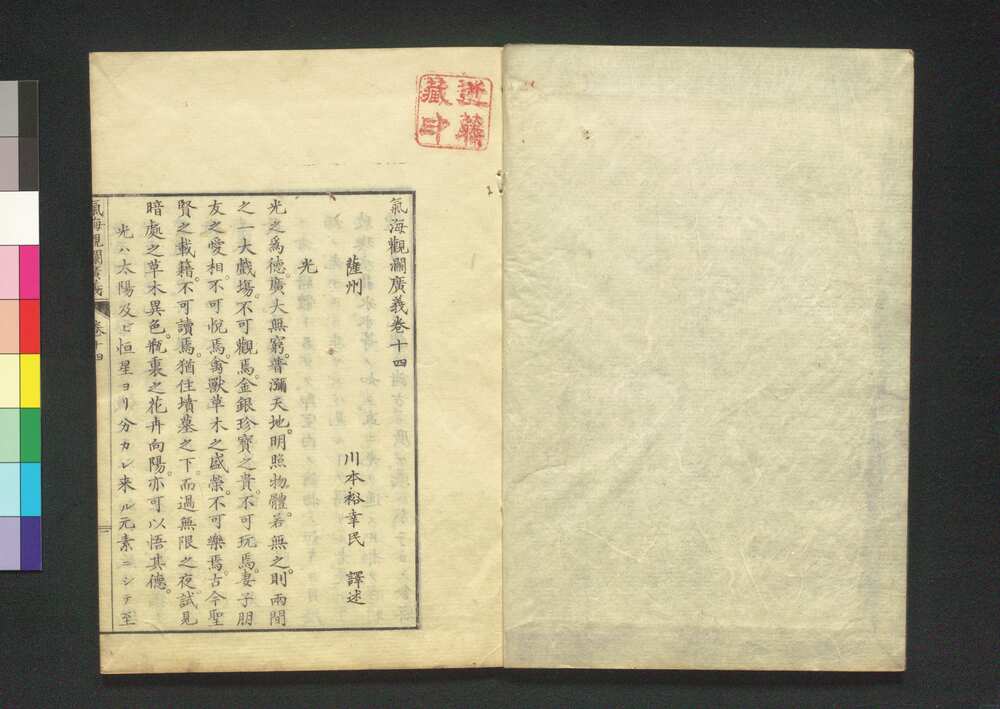 近藤
藏印
氣海觀瀾廣義卷十四
薩州　川本裕幸民　譯述
光
光之爲德。廣大無窮。普瀰天地。明照物體。若無之。則兩間
之一大戲場。不可觀焉。金銀珍寶之貴。不可玩焉。妻子朋
友之愛相。不可悅焉。禽獸草木之盛榮。不可樂焉。古今聖
賢之載籍。不可讀焉。猶住墳墓之下。而過無限之夜。試見
暗處之草木異色。瓶裏之花卉向陽。亦可以悟其德。
光ハ太陽及ビ恒星ヨリ分カレ来ル元素ニシテ至
氣海觀瀾廣義
卷十四
一